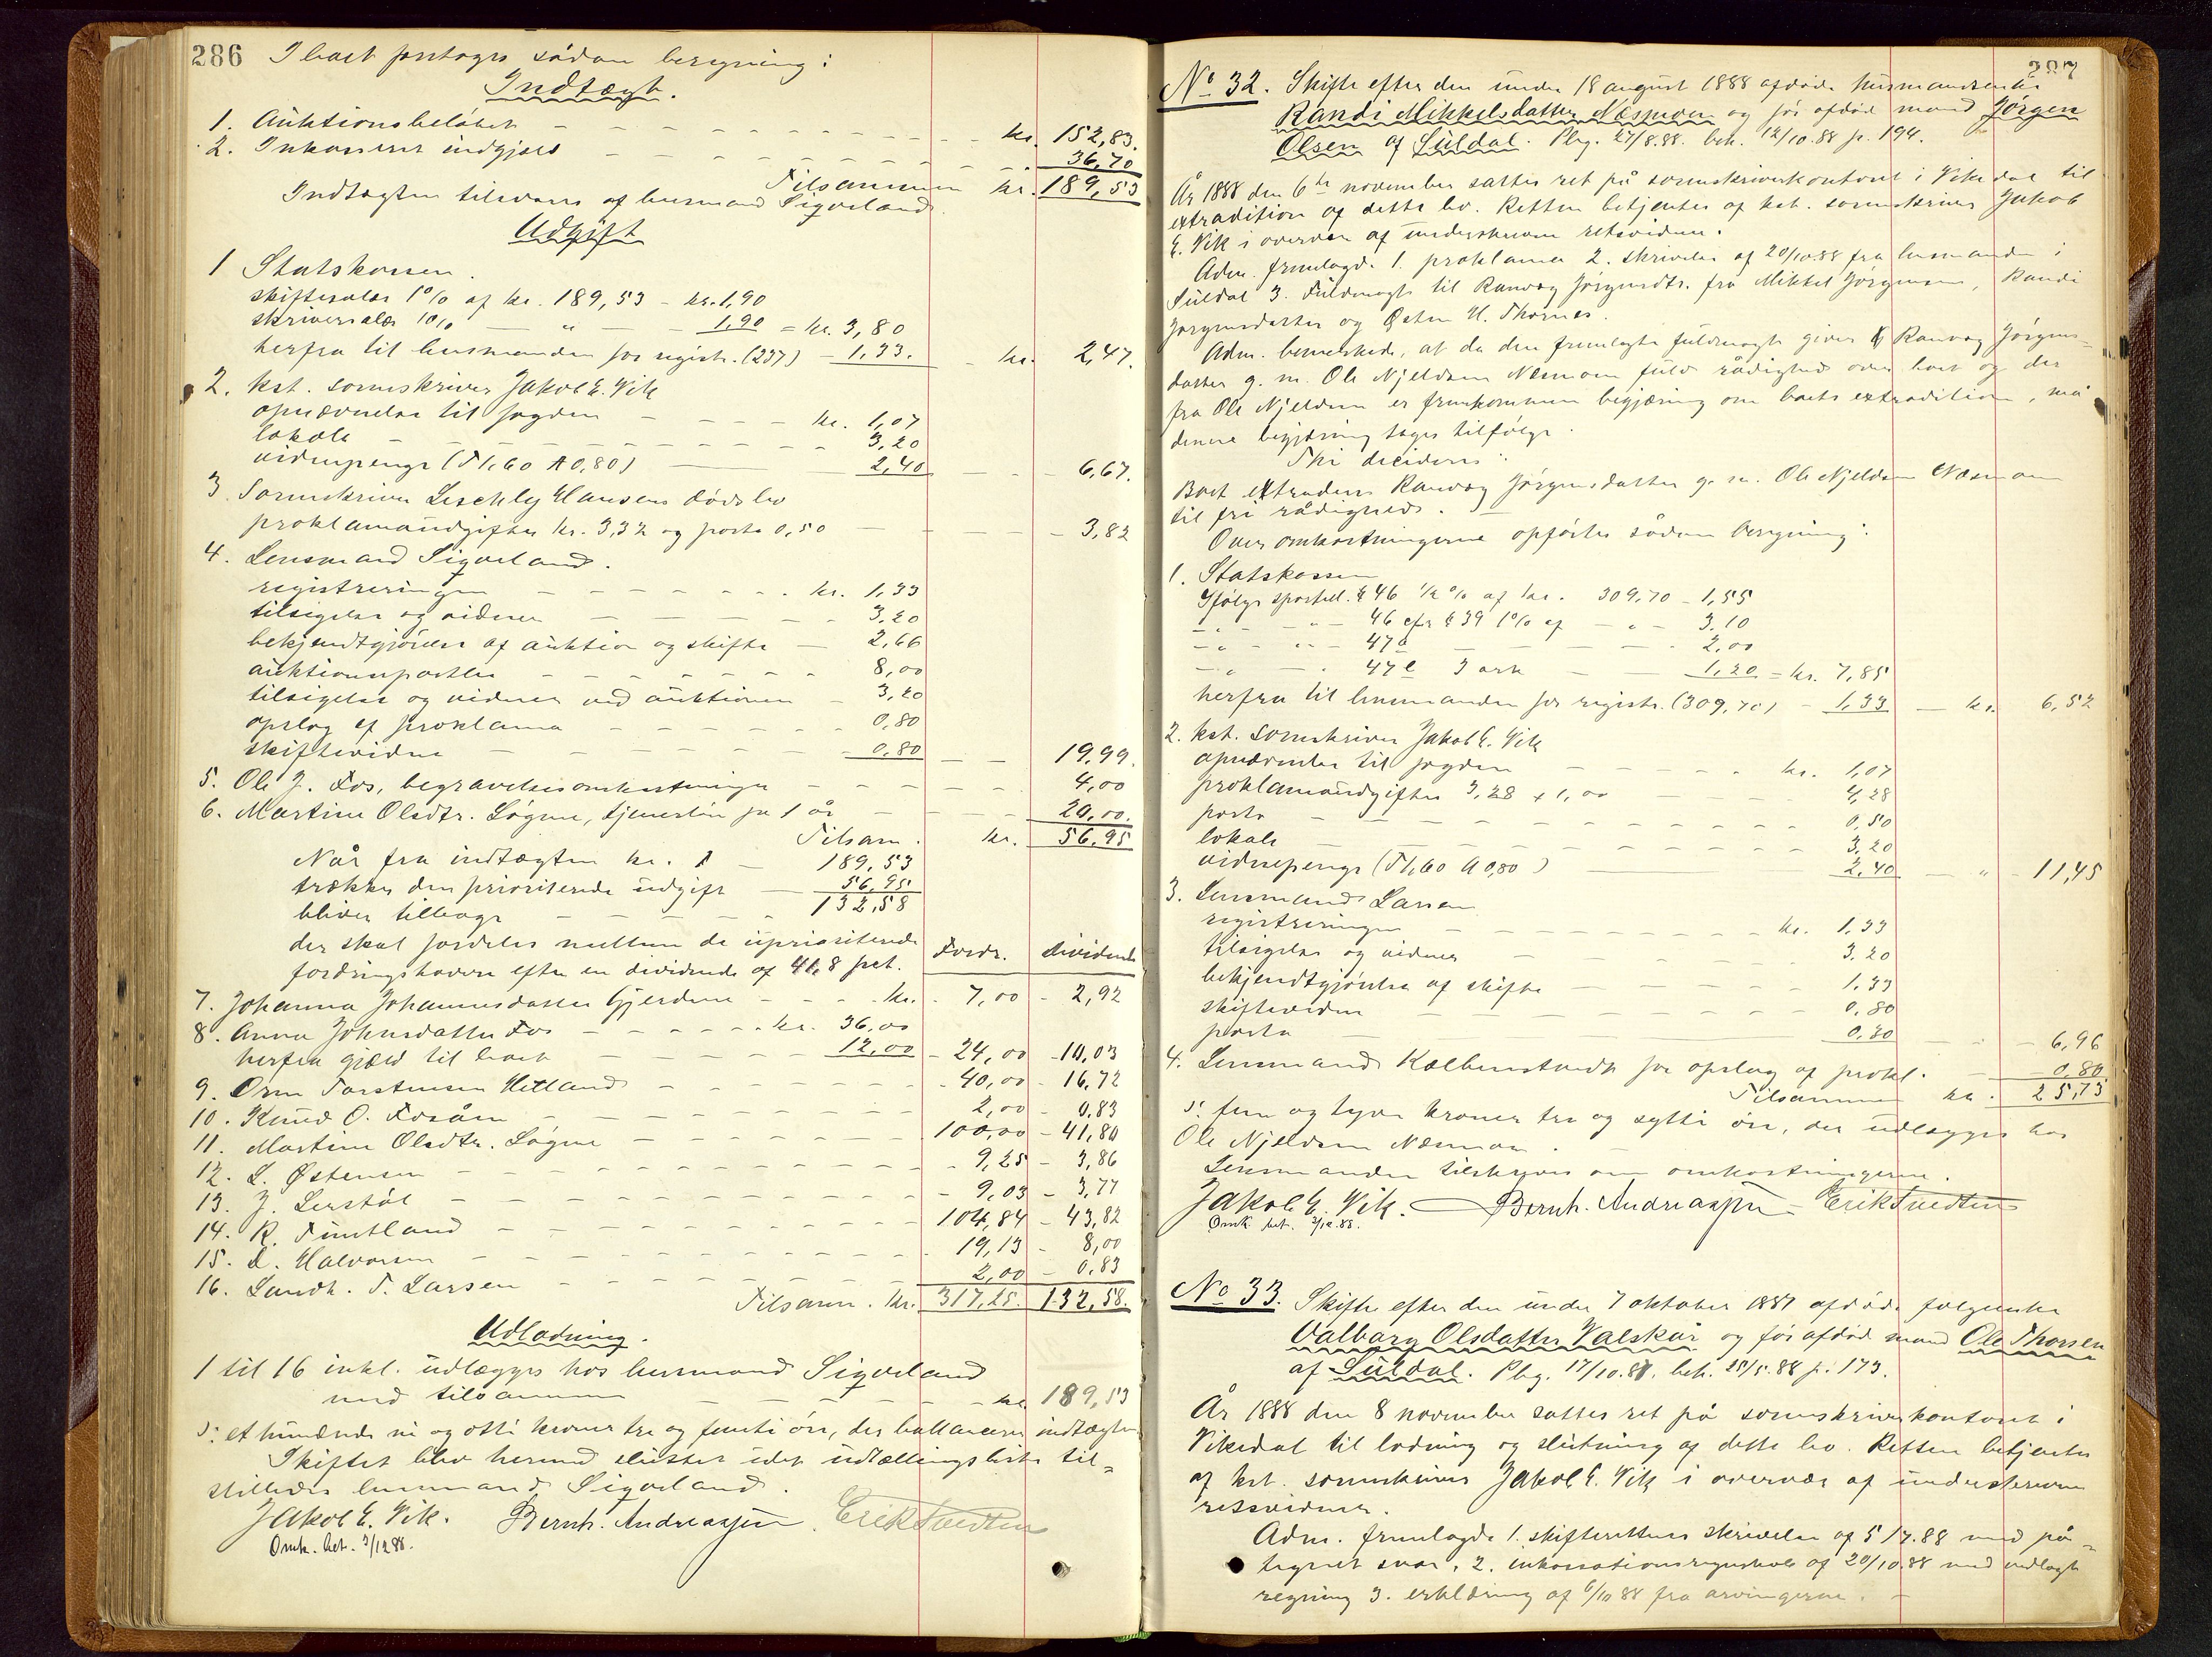 286
I boet foretoges sådan beregning:
Indtægt.
1. Auktionsbeløbet - - - kr. 152,83.
2. Inkasseret indgjæld - - - 36,70
Tilsammen kr. 189,53
Indtægten tilsvares af lensmand Sigveland.
Udgift
1 Statskassen.
skiftesalær 1% af kr. 189,53 - kr. 1,90
skriversalær 1% — " — - 1,90 = kr. 3,80
herfra til lensmanden for registr. (237) - 1,33. - kr. 2,47.
2. kst. sorenskriver Jakob E. Vik
opnævnelse til fogden - - - kr. 1,07
lokale - - - 3,20
vidnepenge (T 1,60 A 0,80) — 2,40 - - 6,67.
3. Sorenskriver Leschly Hansens dødsbo
proklamaudgifter kr. 3,32 og porto 0,50 — - 3,82
4. Lensmand Sigveland.
registreringen - - - kr. 1,33
tilsigelse og vidner - - - 3,20
bekjendtgjørelse af auktion og skifte — 2,66
auktionsforetn - - - 8,00
tilsigelse og vidner ved auktionen - 3,20
opslag af proklama - - - 0,80
skiftevidne - - - 0,80 - - 19,99.
5. Ole J. Fos, begravelsesomkostninger - - - 4,00
6. Martine Olsdtr. Løgne, tjenesteløn for 1 år - - - 20,00.
Tilsam. kr. 56,95
Når fra indtægten kr. — 189,53
trækkes den prioriterede udgift — 56,95
bliver tilbage - - - 132,58
der skal fordeles mellem de uprioriterede
fordringshavere efter en dividende af 41,8 pct. Fordr. dividende
7. Johanna Johannesdatter Gjerdene - - - kr. - 7,00 - 2,92
8. Anna Johnsdatter Fos - - - kr. 36,00
herfra gjæld til boet - - - 12,00 - 24,00 - 10,03
9. Orm Torstensen Hetland - - - 40,00 - 16,72
10. Knud O. Fosåen - - - 2,00 - 0,83
11. Martine Olsdtr. Løgne - - - 100,00 - 41,80
12. L. Østensen - - - 9,25 - 3,86
13. J. Lerstøl - - - 9,03 - 3,77
14. R. Funtland - - - 104,84 - 43,82
15. L. Halvorsen - - - 19,13 - 8,00
16. Landh. T. Larsen - - - 2,00 - 0,83
Tilsam. kr. 317,25. 132,58.
Udlodning.
1 til 16 inkl. udlægges hos lensmand Sigveland
med tilsammen - - - kr. 189,53
ɔ: et hundrede ni og otti kroner tre og femti øre, der ballancerer indtægten
Skiftet blev hermed sluttet idet udtællingsliste til-
stilledes lensmand Sigveland.
Jakob E. Vik. Bernh. Andreassen. Erik Tvedten
Omk. bet. 3/12 88.
287
No 32. Skifte efter den under 18 august 1888 afdøde husmandsenke
Randi Mikkelsdatter Næsmoen og før afdød mand Jørgen
Olsen af Suldal. Pbg. 27/8.88. beh. 12/10.88 p. 194.
År 1888 den 6te november sattes ret på sorenskriverkontoret i Vikedal til
extradition af dette bo. Retten betjentes af kst. sorenskriver Jakob
E. Vik i overvær af underskrevne retsvidner.
Adm. fremlagde 1. proklama 2. skrivelse af 20/10.88 fra lensmanden i
Suldal 3. Fuldmagt til Ranvog Jørgensdtr. fra Mikkel Jørgensen, Randi
Jørgensdatter og Østen H. Thornes.
Adm. bemærkede, at da den fremlagte fuldmagt giver Ranvog Jørgens-
datter g. m. Ole Njeldsen Næsmoen fuld rådighed over boet og der
fra Ole Njeldsen er fremkommen begjæring om boets extradition, må
denne begjæring tages tilfølge.
Thi decideres:
Boet extraderes Ranvog Jørgensdatter g. m. Ole Njeldsen Næsmoen
til fri rådighed. —
Over omkostningerne opførtes sådan beregning:
1. Statskassen
Ifølge sportel. § 46 1/2 % af kr. 309,70 - 1,55
- " - - " - 46 cfr § 39 1% af - " - 3,10
- " - - " - 47 a - - - 2,00
- " - - 47 e 3 ark - - 1,20 = kr. 7,85
herfra til lensmanden for registr. (309,70) - 1,33 — kr. 6,52
2. kst. sorenskriver Jakob E. Vik
opnævnelse til fogden - - - kr. 1,07
proklamaudgifter 3,28 + 1,00 - - 4,28
porto - - - 0,50
lokale - - - 3,20
vidnepenge (T 1,60 A 0,80) — 2,40 - " - 11,45
3. Lensmand Larsen
registreringen - - - kr. 1,33
tilsigelse og vidner - - - 3,20
bekjendtgjørelse af skifte - - - 1,33
skiftevidne - - - 0,80
porto - - - 0,30 - - 6,96
4. Lensmand Kolbenstvedt for opslag af prokl. - - 0,80
Tilsammen kr. 25,73
ɔ: fem og tyve kroner tre og sytti øre, der udlægges hos
Ole Njeldsen Næsmoen.
Lensmanden tilskrives om omkostningerne.
Jakob E. Vik. — Bernh. Andreassen — Erik Tvedten
Omk. bet. 3/12.88.
No 33. Skifte efter den under 7 oktober 1887 afdøde følgeenke
Valborg Olsdatter Valskår og før afdød mand Ole Thorsen
af Suldal. Pbg. 17/10.87. beh. 25/5.88 p. 173.
År 1888 den 8 november sattes ret på sorenskriverkontoret i
Vikedal til lodning og slutning af dette bo. Retten betjentes
af kst. sorenskriver Jakob E. Vik i overvær af underskrevne
retsvidner.
Adm. fremlagde 1. skifterettens skrivelse af 5/7.88 med på-
tegnet svar, 2. inkassationsregnskab af 20/10.88 med vedlagt
regning 3. erklæring af 6/10 88 fra arvingerne. —